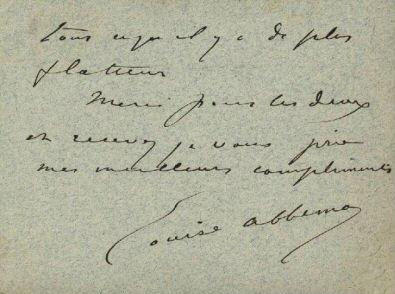 tous ce qu il y a de plus
flatteur
Merci pour les deux
et recevez je vous prie
mes meilleurs compliments
Louise Abbema